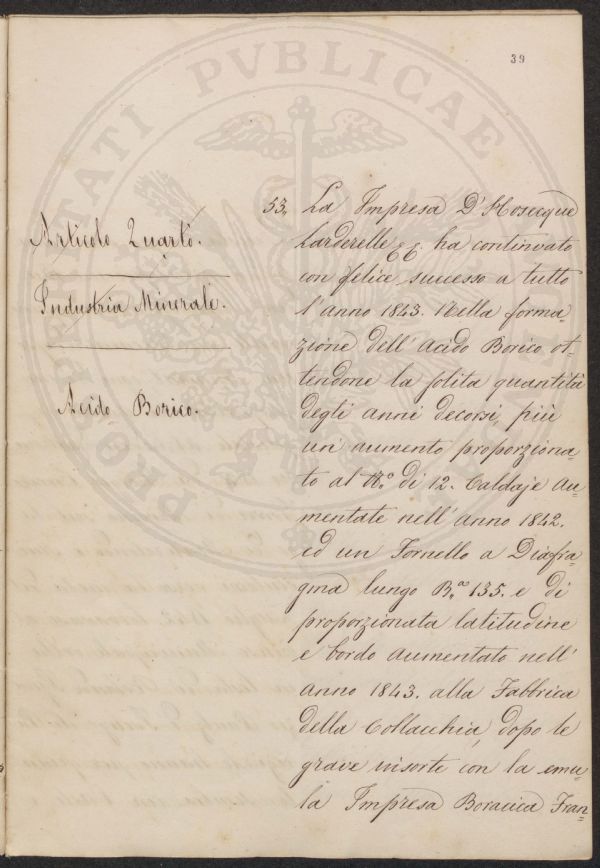 39
PROSPERITATI PVBLICAE
Articolo Quarto.
Industria Minerale.
Acido Borico.
53. La Impresa D'Hosecque
Larderelle CC. ha continvato
con felice successo a tutto
l'anno 1843. Nella forma=
zione dell'Acido Borico ot=
tendone la solita quantità
degli anni decorsi, più
un' aumento proporziona=
to al N.º di 12. Caldaje au=
mentate nell'anno 1842.
ed un Fornello a Diafra=
gma lungo B.ª 135. e di
proporzionata latitudine
e bordo aumentato nell'
anno 1843. alla Fabbrica
della Collacchia, dopo le
grave insorte con la emu=
la Impresa Boracica Fran=